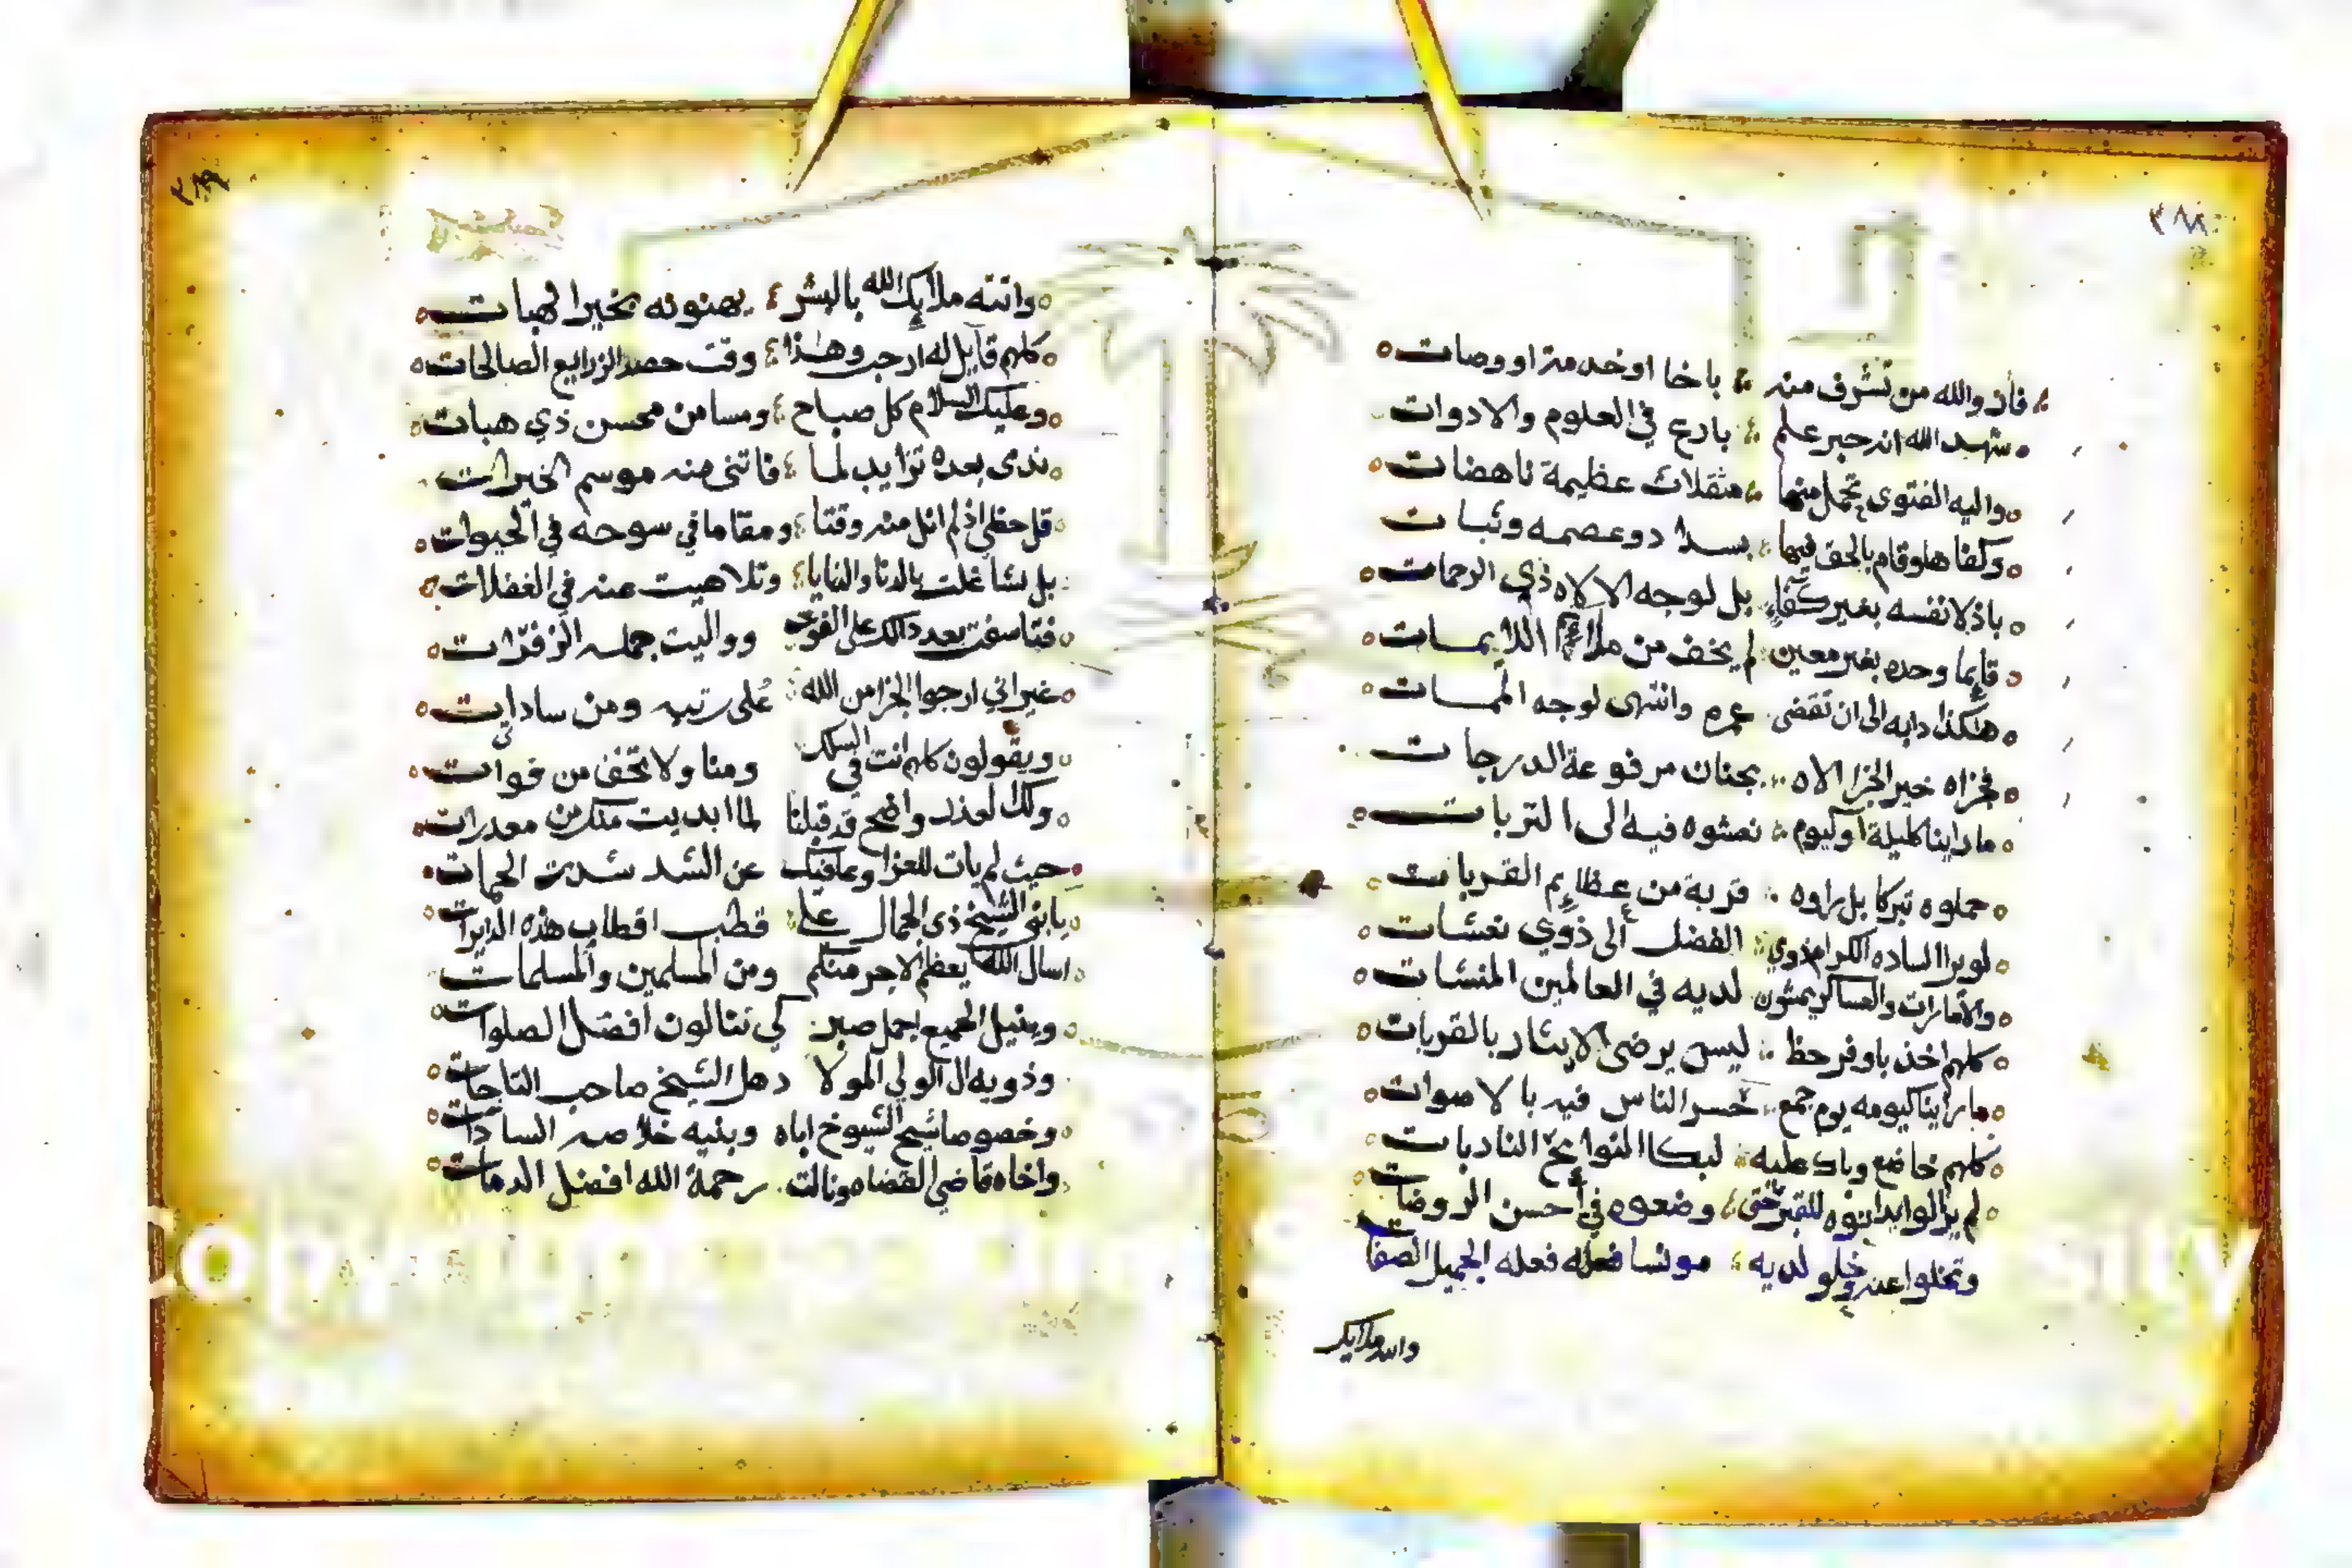 ٣٨٨
فاز والله من تشرف منه باخا اوخدمة او وصات
شهد الله انه حبر علم بارع في العلوم والادوات
واليه الفتوى تحمل منها مثقلات عظيمة ناهضات
وكفاها وقام بالحق فيها دو عصمه وثبات
باذلا نفسه بغير كفاء بل لوجه الالاه ذي الرحمات
قايما وحده بغير معين لم يخف من اللايمات
هكذا دابه الى ان تقضى عمره وانتهى لوجه الممات
فجزاه خير الجزا الاه بجنان مرفوعة الدرجات
ما راينا كليلة اوليوم نعشوه فيه الى التربات
حملوه تبركا بل راوه قربة من عظايم القربات
لو يرا الساده الكرام ذوي الفضل الى ذوي نعشات
والامارات والعساكر يمشون لديه في العالمين المنشات
كلهم اخذ باوفر حظ ليس يرضى الايثار بالقربات
ما راينا كيومه يوم جمع حسر الناس فيه بالاصوات
كلهم خاضع وباك عليه لبكا النوائح النادبات
لم يزالوا للقبر حتى وضعوه في احسن الروضات
وتخلوا عنه وخلو لديه مونسا فعله فعله الجميل الصفات
واتته ملايك
٣٨٩
واتته ملايك الله بالبشر يهنونه بخير الهبات
كلهم قايل له ارجب وهذا وقت حصد الزرايع الصالحات
وعليك السلام كل صباح ومسا من محسن ذي هبات
ندى بعده تزايد لما فاتني منه موسم الخيرات
قل حظي اذ لم انل منه وقتا ومقاما في سوحه في الحيوات
بل تشاغلت بالدنا والنايا وتلاهيت عنه في الغفلات
فتاسفت بعد ذالك على الفوت وواليت جمله الزفرات
غير اني ارجوا الجزا من الله على رتبه ومن ساداتي
ويقولون كلهم انت في السلك ومنا ولا تخف من فوات
ولك العذر واضح قد قبلنا لما ابديت منك من معدرات
حيث لم يات للعزا وعاقبك عن الشد شدة الحمات
يا بني الشيخ ذي الجمال علي قطب اقطاب هذه الدايرات
اسال الله يعظم الاجر منكم ومن المسلمين والمسلمات
وينيل الجميع اجمل صبر كي تنالون افضل الصلوات
وذويه ال الولي المولا دهل الشيخ صاحب التاجات
وخصوصا شيخ الشيوخ اباه وبنيه خلاصه السادات
واخاه قاضي القضاه ونالت رحمة الله افضل الدمات